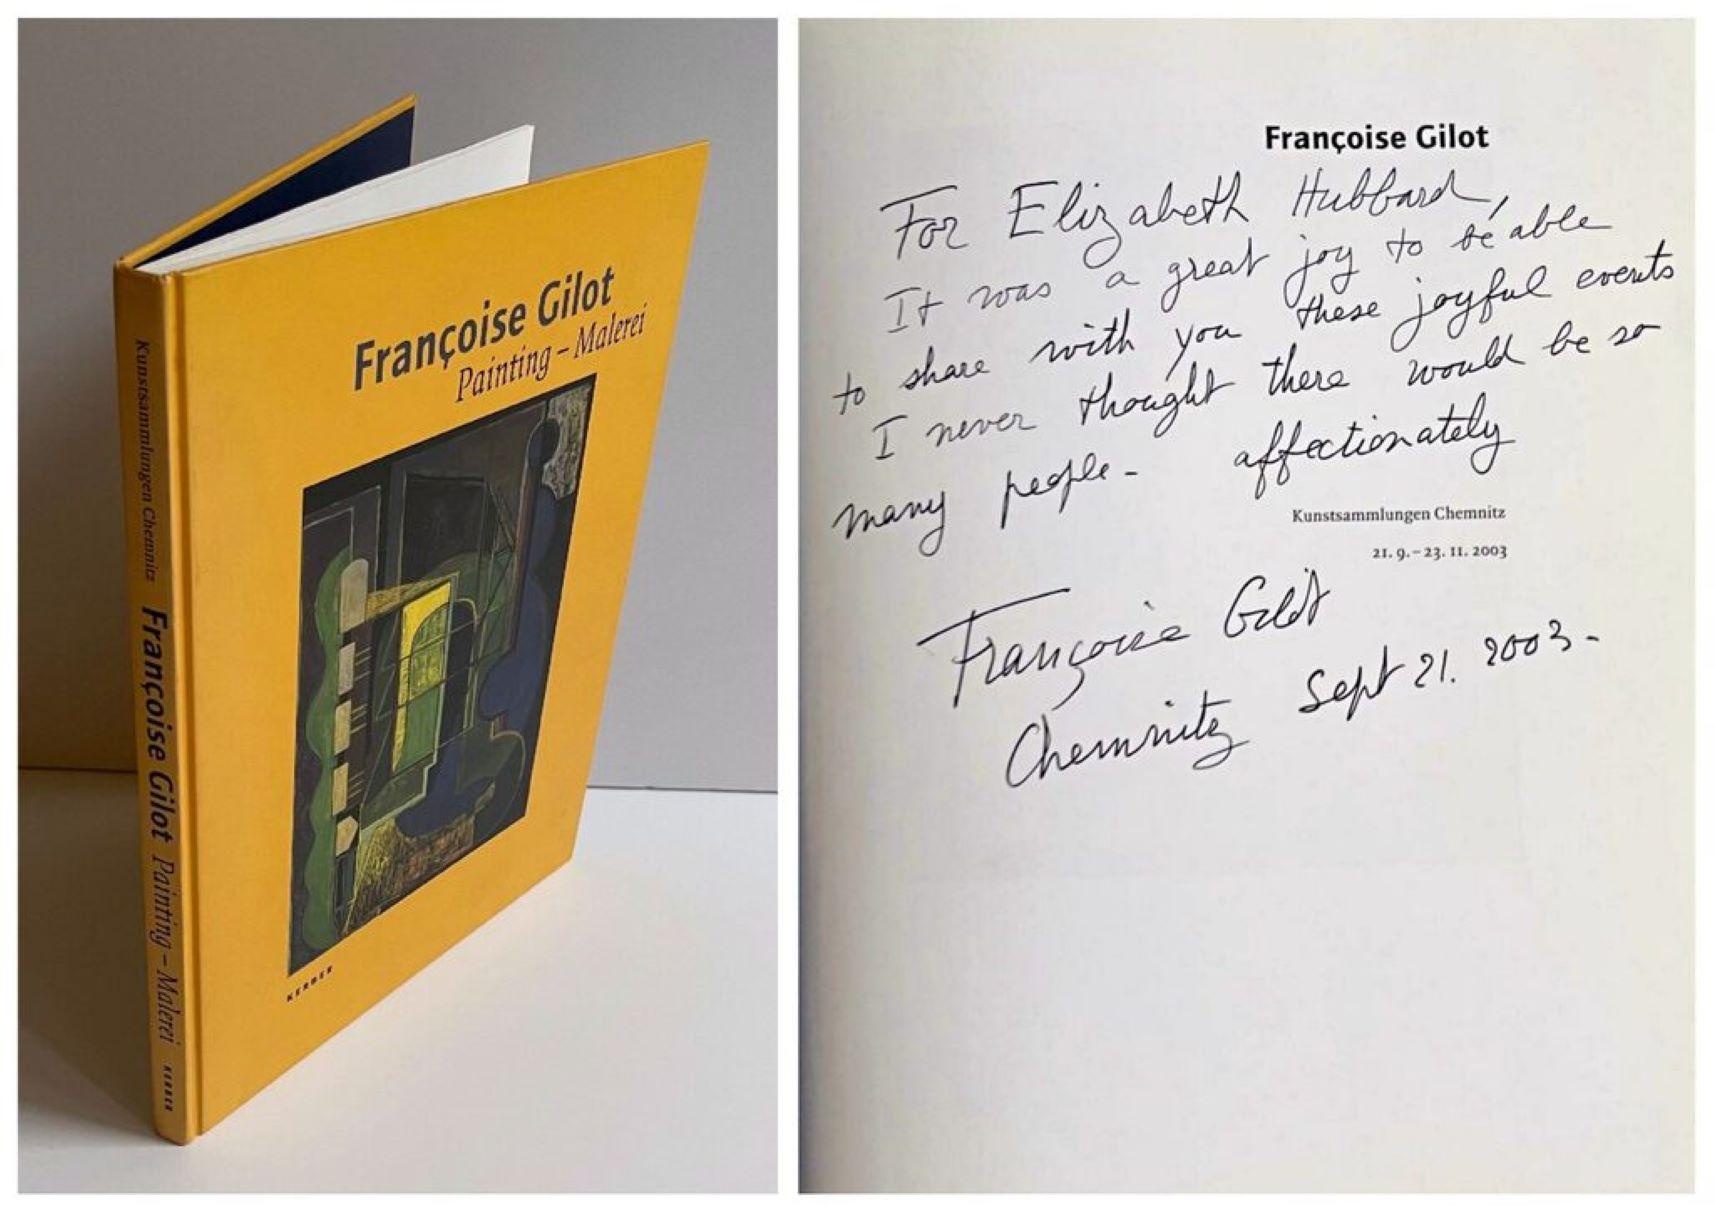 Françoise Gilot
Painting – Malerei
KERBER
Kunstsammlungen Chemnitz Françoise Gilot Painting – Malerei KERBER
Françoise Gilot
For Elizabeth Hubbard,
It was a great joy to be able
to share with you these joyful events
I never thought there would be so
many people - affectionately
Kunstsammlungen Chemnitz
21. 9. – 23. 11. 2003
Françoise Gilot
Chemnitz Sept 21. 2003 -